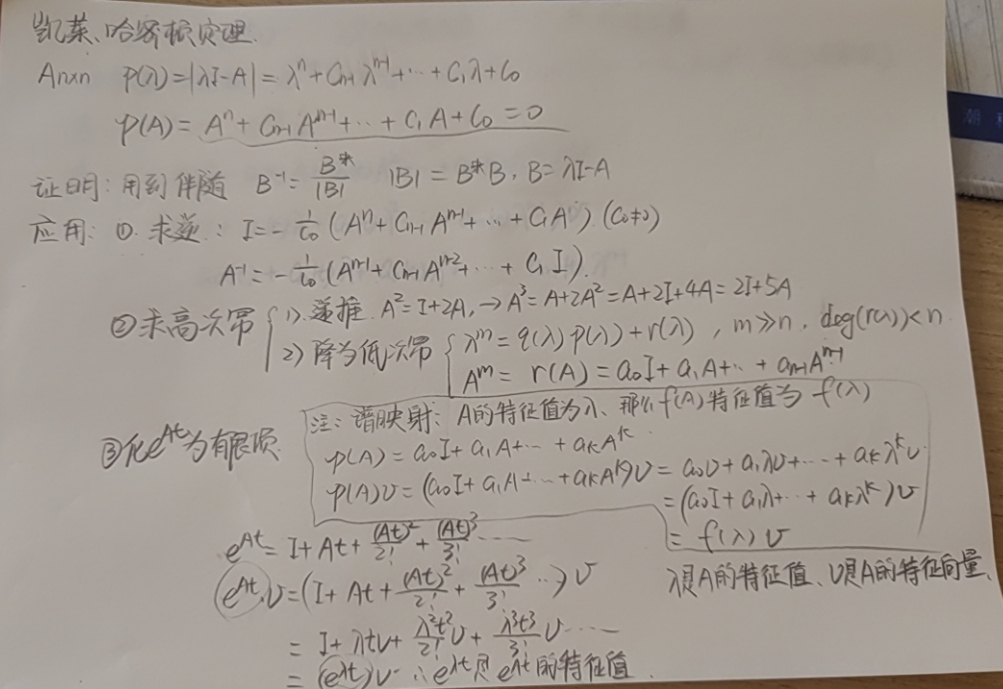 凯莱、哈密顿定理.
An×n p(λ)=|λI-A|=λ^n+C_{n-1}λ^{n-1}+…+C_1λ+C_0
p(A)=A^n+C_{n-1}A^{n-1}+…+C_1A+C_0=0
证明:用到伴随 B^{-1}=B*/|B| |B|=B*B, B=λI-A
应用:①.求逆:I=-1/C_0(A^n+C_{n-1}A^{n-1}+…+C_1A).(C_0≠0)
A^{-1}=-1/C_0(A^{n-1}+C_{n-1}A^{n-2}+…+C_1I).
②求高次幂 1).递推 A^2=I+2A,→A^3=A+2A^2=A+2I+4A=2I+5A
2)降为低次幂 λ^m=q(λ)p(λ)+r(λ), m≫n, deg(r(λ))<n
A^m=r(A)=a_0I+a_1A+…+a_{n-1}A^{n-1}
③化e^{At}为有限项.
注:谱映射:A的特征值为λ、那么f(A)特征值为f(λ)
p(A)=a_0I+a_1A+…+a_kA^k
p(A)v=(a_0I+a_1A+…+a_kA^k)v=a_0v+a_1λv+…+a_kλ^kv
=(a_0I+a_1λ+…+a_kλ^k)v
=f(λ)v
e^{At}=I+At+(At)^2/2!+(At)^3/3!……
e^{At}.v=(I+At+(At)^2/2!+(At)^3/3!…)v
λ是A的特征值、v是A的特征向量、
=I+λtv+λ^2t^2/2!v+λ^3t^3/3!v……
=(e^{λt})v ∴e^{λt}是e^{At}的特征值